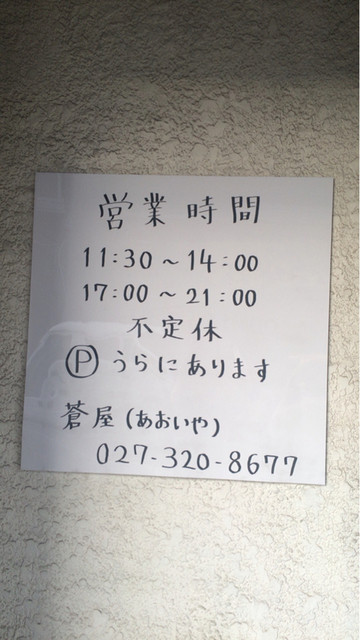 営業時間
11:30～14:00
17:00～21:00
不定休
Ⓟうらにあります
蒼屋(あおいや)
027-320-8677